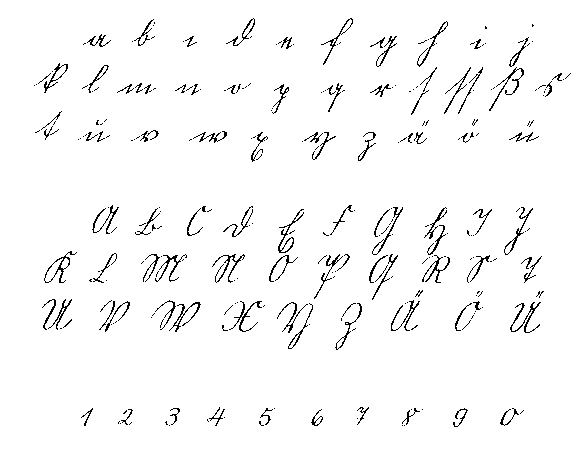 a b c d e f g h i j
k l m n o p q r ſ ſſ ß s
t u v w x y z ä ö ü
A B C D E F G H I J
K L M N O P Q R S T
U V W X Y Z Ä Ö Ü
1 2 3 4 5 6 7 8 9 0